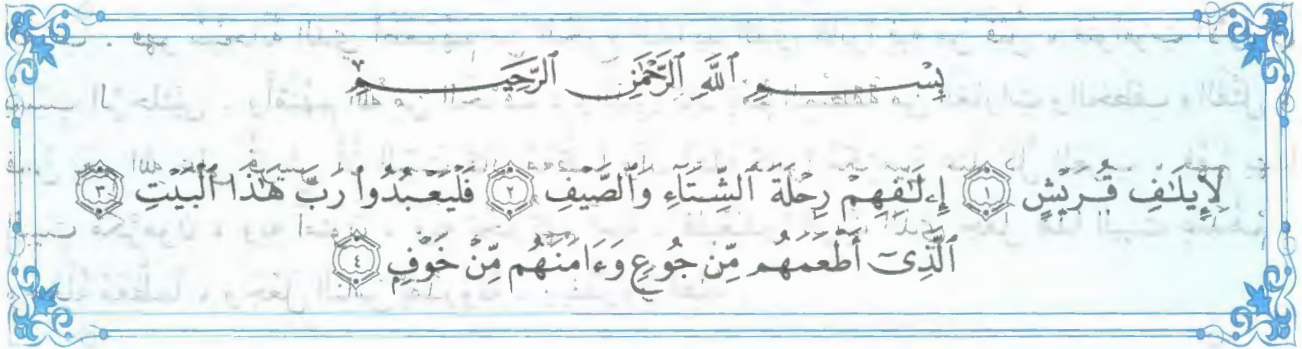 بِسْمِ ٱللَّهِ ٱلرَّحْمَٰنِ ٱلرَّحِيمِ
لِإِيلَٰفِ قُرَيْشٍ ١ إِۦلَٰفِهِمْ رِحْلَةَ ٱلشِّتَآءِ وَٱلصَّيْفِ ٢ فَلْيَعْبُدُوا۟ رَبَّ هَٰذَا ٱلْبَيْتِ ٣
ٱلَّذِىٓ أَطْعَمَهُم مِّن جُوعٍ وَءَامَنَهُم مِّنْ خَوْفٍۭ ٤